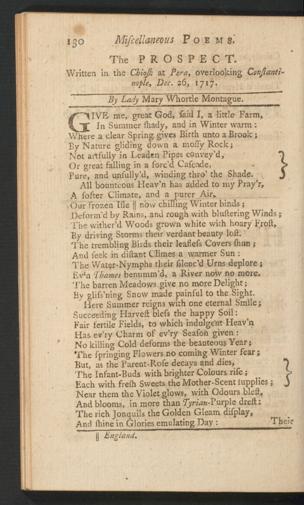 130 Miscellaneous POEMS.
The PROSPECT.
Written in the Chiosk at Pera, overlooking Constanti-
nople, Dec. 26, 1717.
By Lady Mary Whortle Montague.
GIVE me, great God, said I, a little Farm,
In Summer shady, and in Winter warm:
Where a clear Spring gives Birth unto a Brook;
By Nature gliding down a mossy Rock;
Not artfully in Leaden Pipes convey'd,
Or great falling in a forc'd Cascade.
Pure, and unsully'd, winding thro' the Shade.
All bounteous Heav'n has added to my Pray'r,
A softer Climate, and a purer Air.
Our frozen Isle ‖ now chilling Winter binds;
Deform'd by Rains, and rough with blustering Winds;
The wither'd Woods grown white with hoary Frost,
By driving Storms their verdant beauty lost.
The trembling Birds their leafless Covers shun;
And seek in distant Climes a warmer Sun:
The Water-Nymphs their silenc'd Urns deplore;
Ev'n Thames benumm'd, a River now no more.
The barren Meadows give no more Delight;
By glist'ning Snow made painful to the Sight.
Here Summer reigns with one eternal Smile;
Succeeding Harvest bless the happy Soil:
Fair fertile Fields, to which indulgent Heav'n
Has ev'ry Charm of ev'ry Season given:
No killing Cold deforms the beauteous Year;
The springing Flowers no coming Winter fear;
But, as the Parent-Rose decays and dies,
The Infant-Buds with brighter Colours rise;
Each with fresh Sweets the Mother-Scent supplies;
Near them the Violet glows, with Odours blest,
And blooms, in more than Tyrian-Purple drest:
The rich Jonquils the Golden Gleam display,
And shine in Glories emulating Day: Their
‖ England.